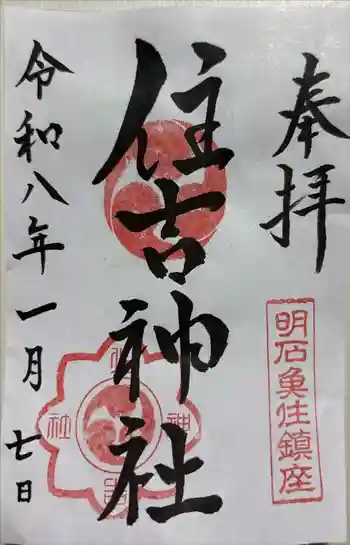 奉拝
明石魚住鎮座
住吉神社
住吉神社
令和八年一月七日